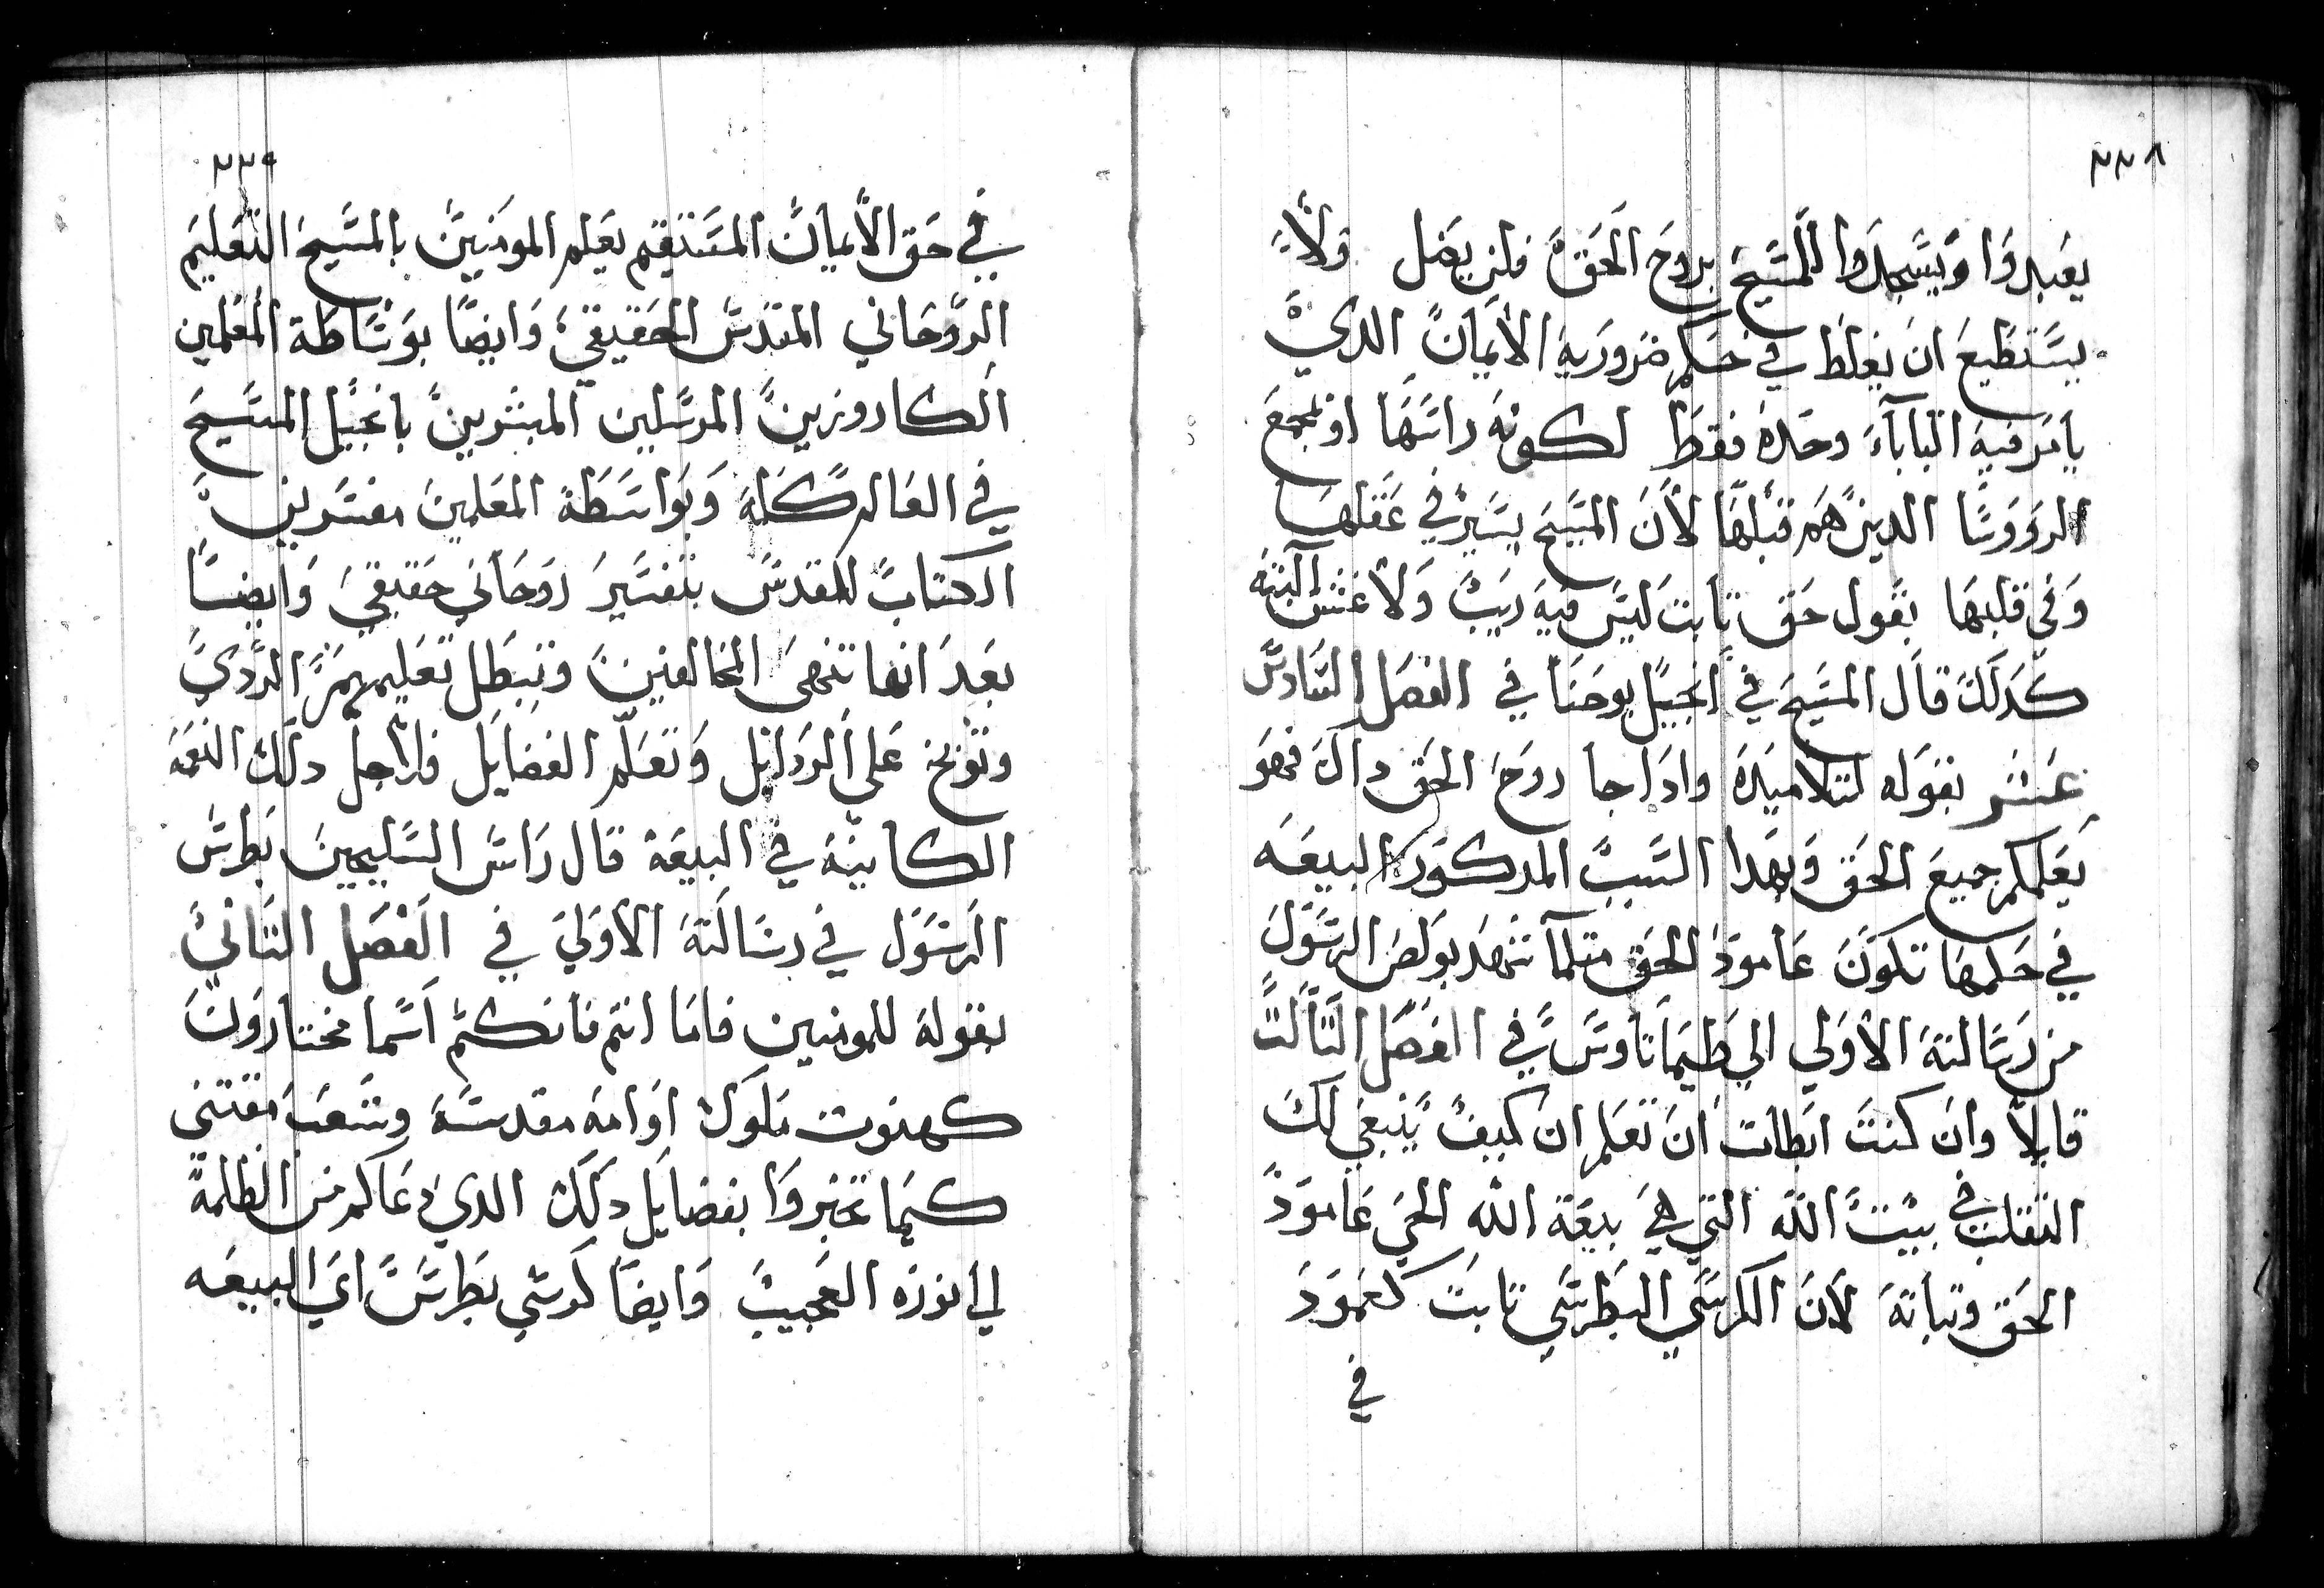 ٢٣٨
يعبدوا ويسجدوا للمسيح بروح الحق فلن يضل ولا
يستطيع ان يغلط في حكم ضرورية الأيمان الدي
يامر فيه البابآء وحده فقط لكونه راسها او بمجمع
الرووسا الدين هم قبلها لأن المسيح يسير في عقلها
وفي قلبها بقول حق تابت ليس فيه ريب ولا غش البته
كدلك قال المسيح في انجيل يوحنا في الفصل السادس
عشر بقوله لتلاميده وادا جا روح الحق داك فهو
يعلمكم جميع الحق وبهدا السبب المدكور البيعه
في حكمها تكون عامود الحق متلما شهد بولص الرسول
من رسالته الأولي الي طيماتاوس في الفصل التالت
قايلا وان كنت ابطات ان تعلم ان كيف ينبغي لك
التقلب في بيت الله التي هي بيعة الله الحي عامود
الحق وتباته لأن الكرسي البطرسي تابت كعمود
في
٢٣٩
في حق الأيمان المستقيم يعلم المومنين بالمسيح التعليم
الروحاني المقدس الحقيقي وايضا بوساطة المعلمين
الكاروزين المرسلين المبشرين بانجيل المسيح
في العالم كله وبواسطة المعلمين مفسرين
الكتاب المقدس بتفسير روحاني حقيقي وايضا
بعد انها تنهي المخالفين وتبطل تعليمهم الردي
وتوبخ علي الردايل وتعلم الفضايل فلأجل دلك النعمه
الكاينة في البيعة قال راس السليحيين بطرس
الرسول في رسالته الأولي في الفصل التاني
بقوله للمومنين فاما انتم فانكم اسما مختارون
كهنوت ملوك اوامه مقدسة وشعب مقتني
كيما تخبروا بفضايل دلك الدي دعاكم من الظلمة
لي انوره العجيب وايضا كرسي بطرس اي البيعه